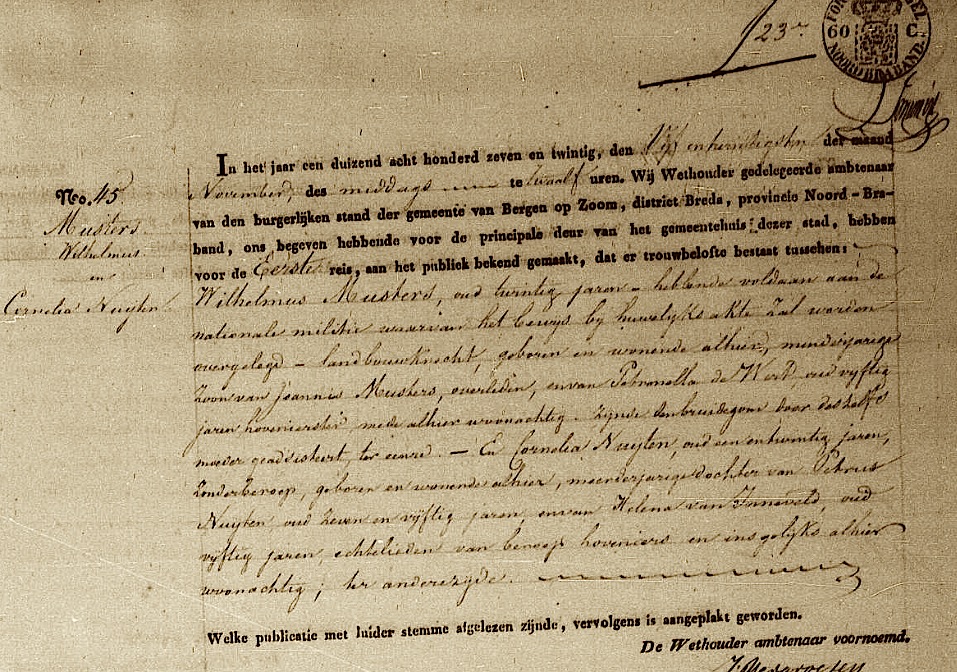 23
FOR
60 C.
NOORD BRABAND
In het jaar een duizend acht honderd zeven en twintig, den Vijf en twintigsten der maand
November, des middags te twaalf uren. Wij Wethouder gedelegeerde ambtenaar
van den burgerlijken stand der gemeente van Bergen op Zoom, district Breda, provincie Noord-Bra-
band, ons begeven hebbende voor de principale deur van het gemeentehuis dezer stad, hebben
voor de Eerste reis, aan het publiek bekend gemaakt, dat er trouwbelofte bestaat tusschen:
No. 45
Musters
Wilhelmus
en
Cornelia Nuyten
Wilhelmus Musters, oud twintig jaren - hebbende voldaan aan de
nationale militie waarvan het bewys by huwelyks akte zal worden
overgelegd - landbouwknecht, geboren en wonende alhier, minderjarige
zoon van Joannis Musters, overleden, en van Petronella de Wert, oud vyftig
jaren hovenierster, mede alhier woonachtig - zynde den bruidegom door deszelfs
moeder geadsisteert, ter eenre. - En Cornelia Nuyten, oud een en twintig jaren,
zonder beroep, geboren en wonende alhier, meerderjarige dochter van Petrus
Nuyten oud zeven en vyftig jaren, en van Helena van Inneveld, oud
vyftig jaren, echtelieden van beroep hoveniers en insgelyks alhier
woonachtig; ter andere zyde.
Welke publicatie met luider stemme afgelezen zijnde, vervolgens is aangeplakt geworden.
De Wethouder ambtenaar voornoemd.